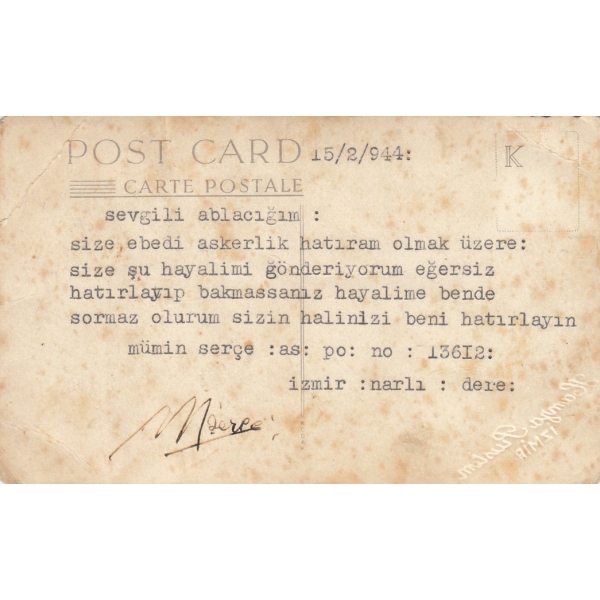 POST CARD 15/2/944:
K
CARTE POSTALE
sevgili ablacığım :
size ebedi askerlik hatıram olmak üzere:
size şu hayalimi gönderiyorum eğersiz
hatırlayıp bakmassanız hayalime bende
sormaz olurum sizin halinizi beni hatırlayın
mümin serçe :as: po: no : 136I2:
izmir :narlı : dere:
MSerçe
Hamza Rüstem
İZMİR